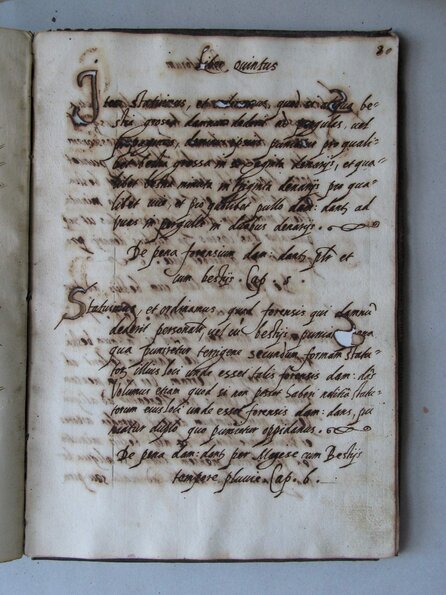 Liber quintus
80
Item statuimus, et ordinamus, quod si aliqua be-
stia grossa damnum dederit in pergulis, vel
dominus ipsius puniatur pro qualibet
bestia grossa in viginti denarijs, et qua-
libet bestia minuta in triginta denarijs pro qua-
libet vice, et pro quolibet pullo dam: dante ad
uvas in pergulis in duobus denarijs.
De pena forensium dam: dant: et
cum bestijs Cap. 5.
Statuimus, et ordinamus, quod forensis qui damnu
dederit personalr, vel cu bestijs puniatur pena
qua puniretur terrigena secundum formam statu-
tor illius loci unde esset talis forensis dam: d
Volumus etiam quod si non posset haberi notitia statu-
torum eius loci unde esset forensis dam: dans, pu-
niatur duplo quo punientur oppidanus.
De pena dam: dant: per Menese cum Bestijs
tempore pluvie. Cap. 6.